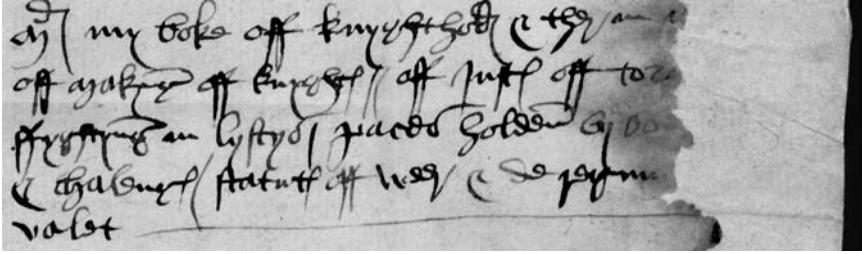 my boke off knyghthod & ther in
off makyng off knyghts / off justs off tor
ffyghtyng in lystys paces holden by so
& chalengs / statuts off weer & de regimi
valet